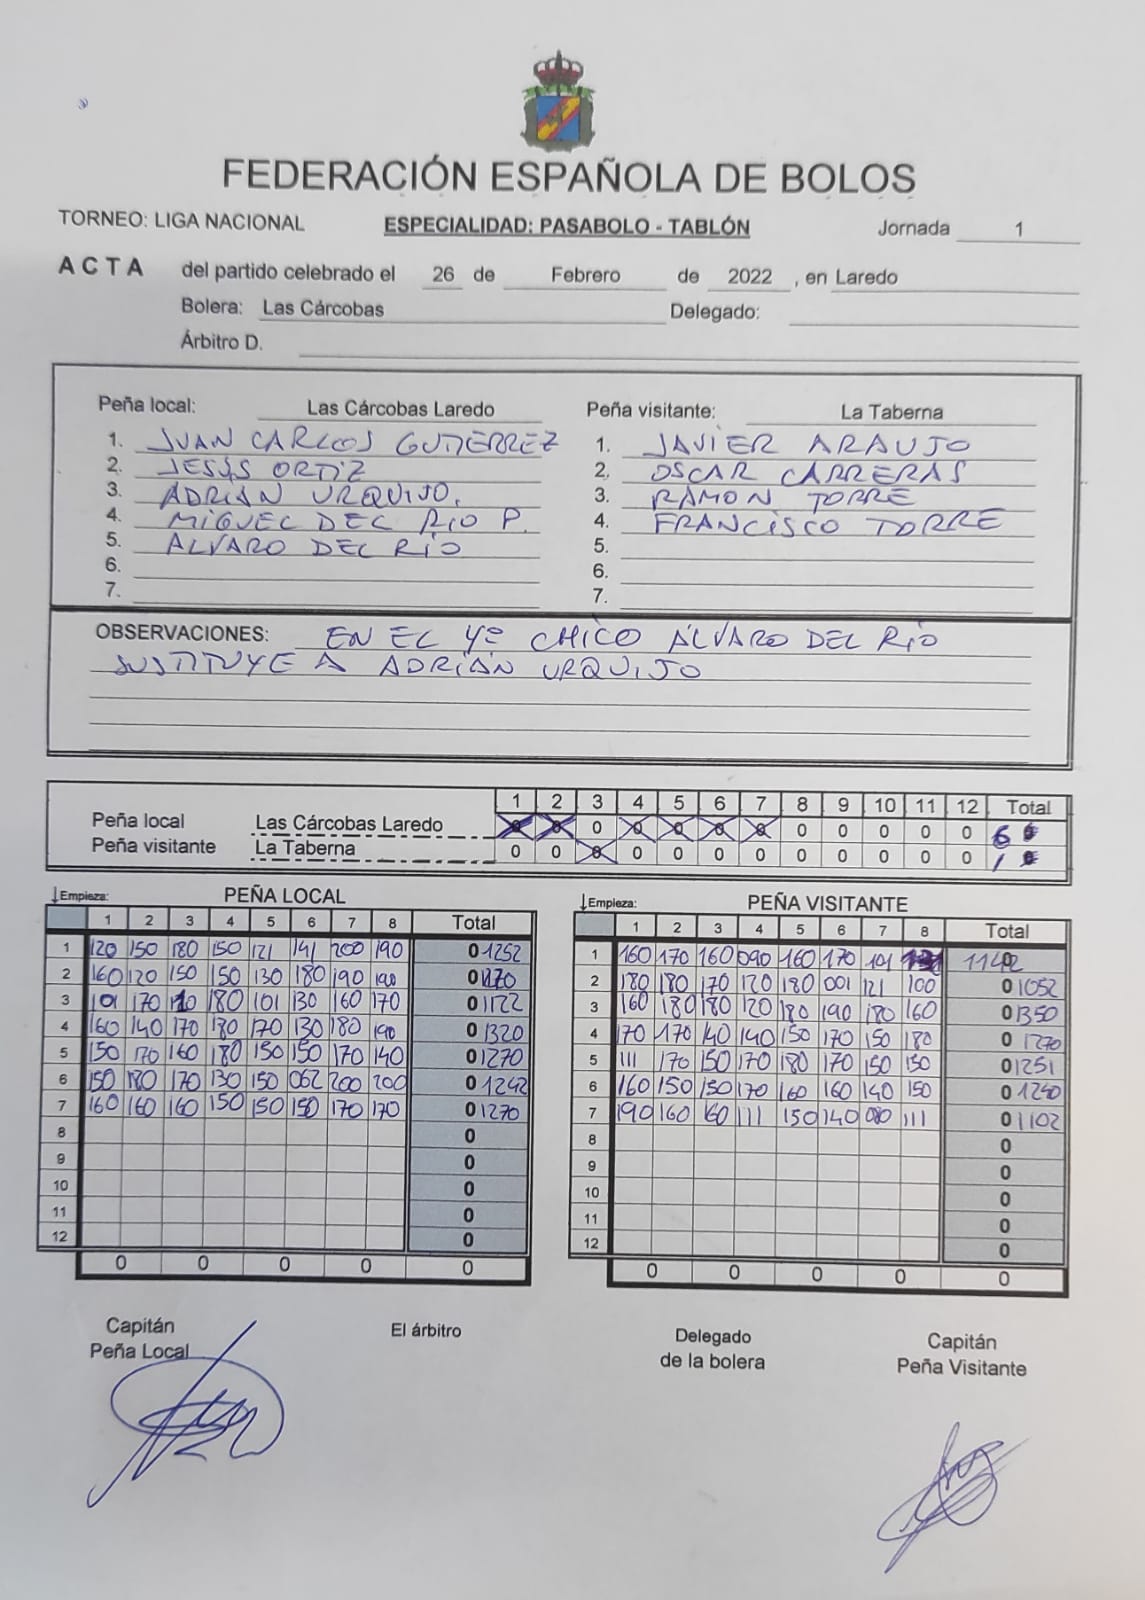 FEDERACIÓN ESPAÑOLA DE BOLOS
TORNEO: LIGA NACIONAL ESPECIALIDAD: PASABOLO - TABLÓN Jornada 1
ACTA del partido celebrado el 26 de Febrero de 2022 , en Laredo
Bolera: Las Cárcobas Delegado:
Árbitro D.
Peña local: Las Cárcobas Laredo Peña visitante: La Taberna
1. JUAN CARLOS GUTIÉRREZ 1. JAVIER ARAUJO
2. JESÚS ORTIZ 2. OSCAR CARRERAS
3. ADRIÁN URQUIJO. 3. RAMON TORRE
4. MIGUEL DEL RIO P. 4. FRANCISCO TORRE
5. ALVARO DEL RÍO 5.
6. 6.
7. 7.
OBSERVACIONES: EN EL 4º CHICO ÁLVARO DEL RÍO
SUSTITUYE A ADRIÁN URQUIJO
1 2 3 4 5 6 7 8 9 10 11 12 Total
Peña local Las Cárcobas Laredo 0 0 0 0 0 0 0 0 0 0 0 0 6
Peña visitante La Taberna 0 0 0 0 0 0 0 0 0 0 0 0 1
↓Empieza: PEÑA LOCAL ↓Empieza: PEÑA VISITANTE
1 2 3 4 5 6 7 8 Total 1 2 3 4 5 6 7 8 Total
1 120 150 180 150 121 141 200 190 0 1252 1 160 170 160 090 160 170 101 131 0 1142
2 160 120 150 150 130 180 190 190 0 2 180 180 170 120 180 001 121 100 0 1052
3 101 170 180 101 130 160 170 0 1122 3 160 180 180 120 180 190 180 160 0 1350
4 160 140 170 180 170 130 180 190 0 1320 4 170 170 140 140 150 170 150 180 0 1270
5 150 170 160 180 150 150 170 140 0 1270 5 111 170 150 170 180 170 150 150 0 1251
6 150 180 170 130 150 062 200 200 0 1242 6 160 150 150 170 160 160 140 150 0 1240
7 160 160 160 150 150 150 170 170 0 1270 7 190 160 160 111 150 140 080 111 0 1102
8 0 8 0
9 0 9 0
10 0 10 0
11 0 11 0
12 0 12 0
0 0 0 0 0 0 0 0 0 0
Capitán El árbitro Delegado Capitán
Peña Local de la bolera Peña Visitante